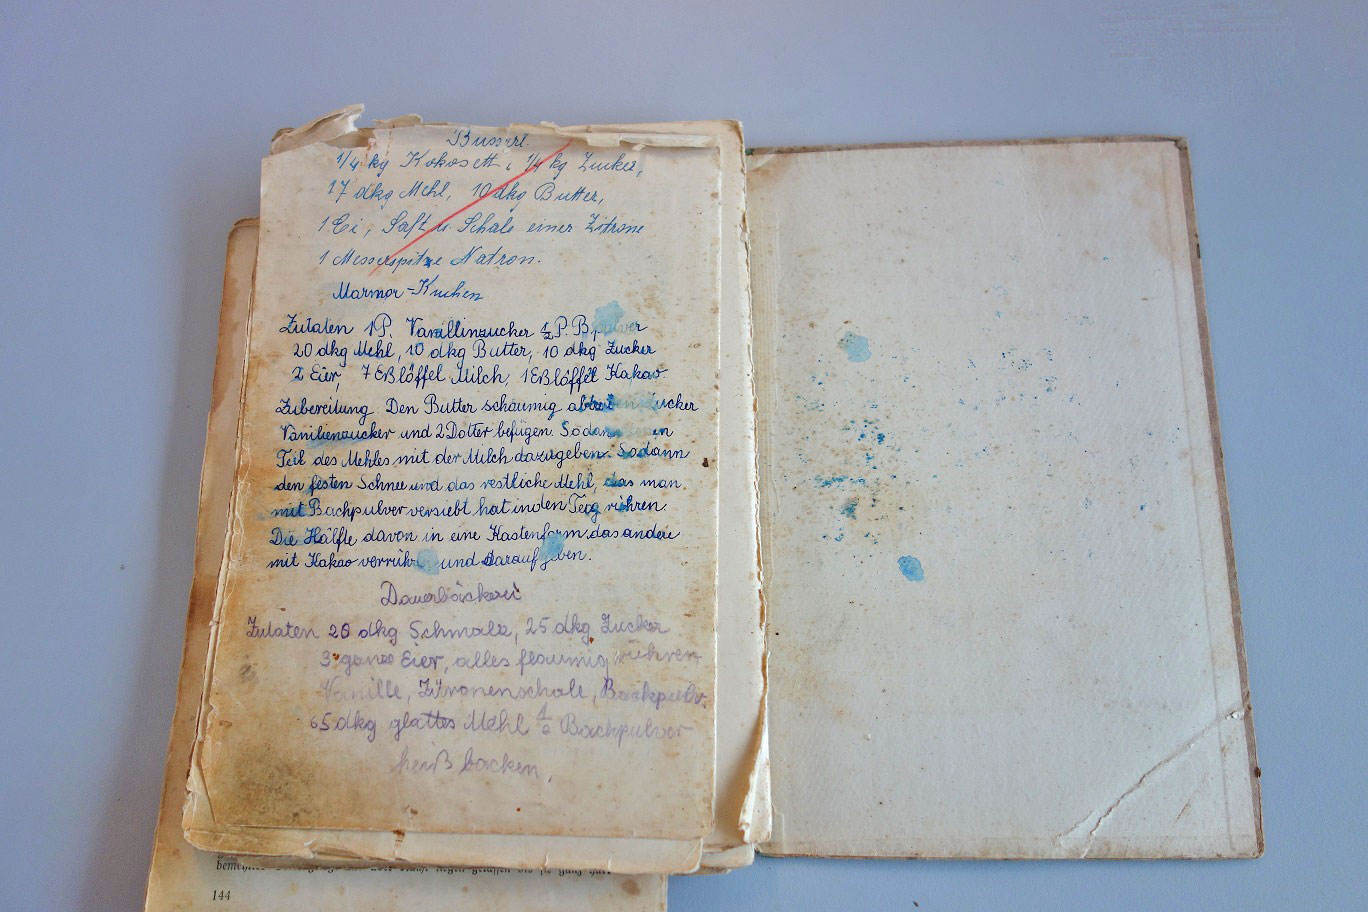 Busserl.
1/4 kg Kokosett, 1/4 kg Zucker,
17 dkg Mehl, 10 dkg Butter,
1 Ei, Saft u. Schale einer Zitrone
1 Messerspitze Natron.
Marmor-Kuchen
Zutaten 1P. Vanillinzucker ½ P. B.pulver
20 dkg Mehl, 10 dkg Butter, 10 dkg Zucker
2 Eier, 7 Eßlöffel Milch, 1 Eßlöffel Kakao
Zubereitung Den Butter schaumig Zucker
Vanilienzucker und 2 Dotter befügen. Sodann
Teil des Mehles mit der Milch dazugeben. Sodann
den festen Schnee und das restliche Mehl, das man
mit Bachpulver versiebt hat in den Teag rühren.
Die Hälfte davon in eine Kastenform das andere
mit Kakao und darauf
Dauerbäckerei
Zutaten 20 dkg Schmalz, 25 dkg Zucker
3 ganze Eier, alles flaumig rühren
Vanille, Zitronenschale, Backpulv.
65 dkg glattes Mehl ½ Bachpulver
heiß backen.
144